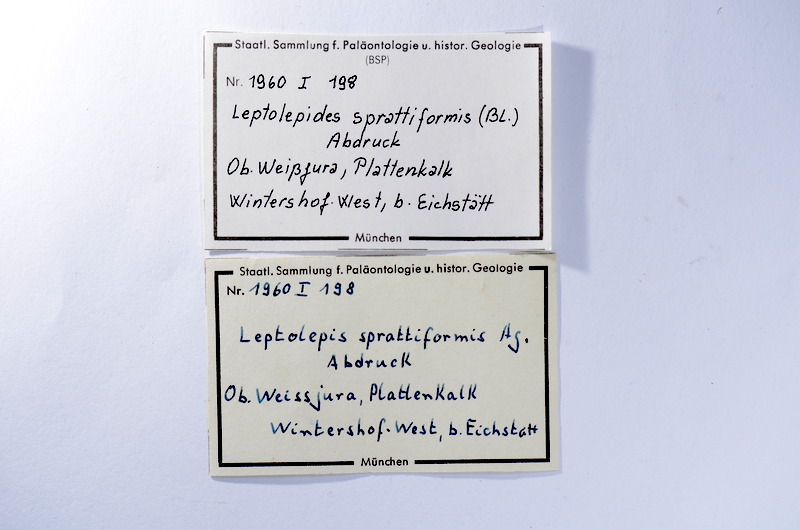 Staatl. Sammlung f. Paläontologie u. histor. Geologie
(BSP)
Nr. 1960 I 198
Leptolepides sprattiformis (BL.)
Abdruck
Ob. Weißjura, Plattenkalk
Wintershof-West, b. Eichstätt
München
Staatl. Sammlung f. Paläontologie u. histor. Geologie
Nr. 1960 I 198
Leptolepis sprattiformis Ag.
Abdruck
Ob. Weissjura, Plattenkalk
Wintershof-West, b. Eichstätt
München